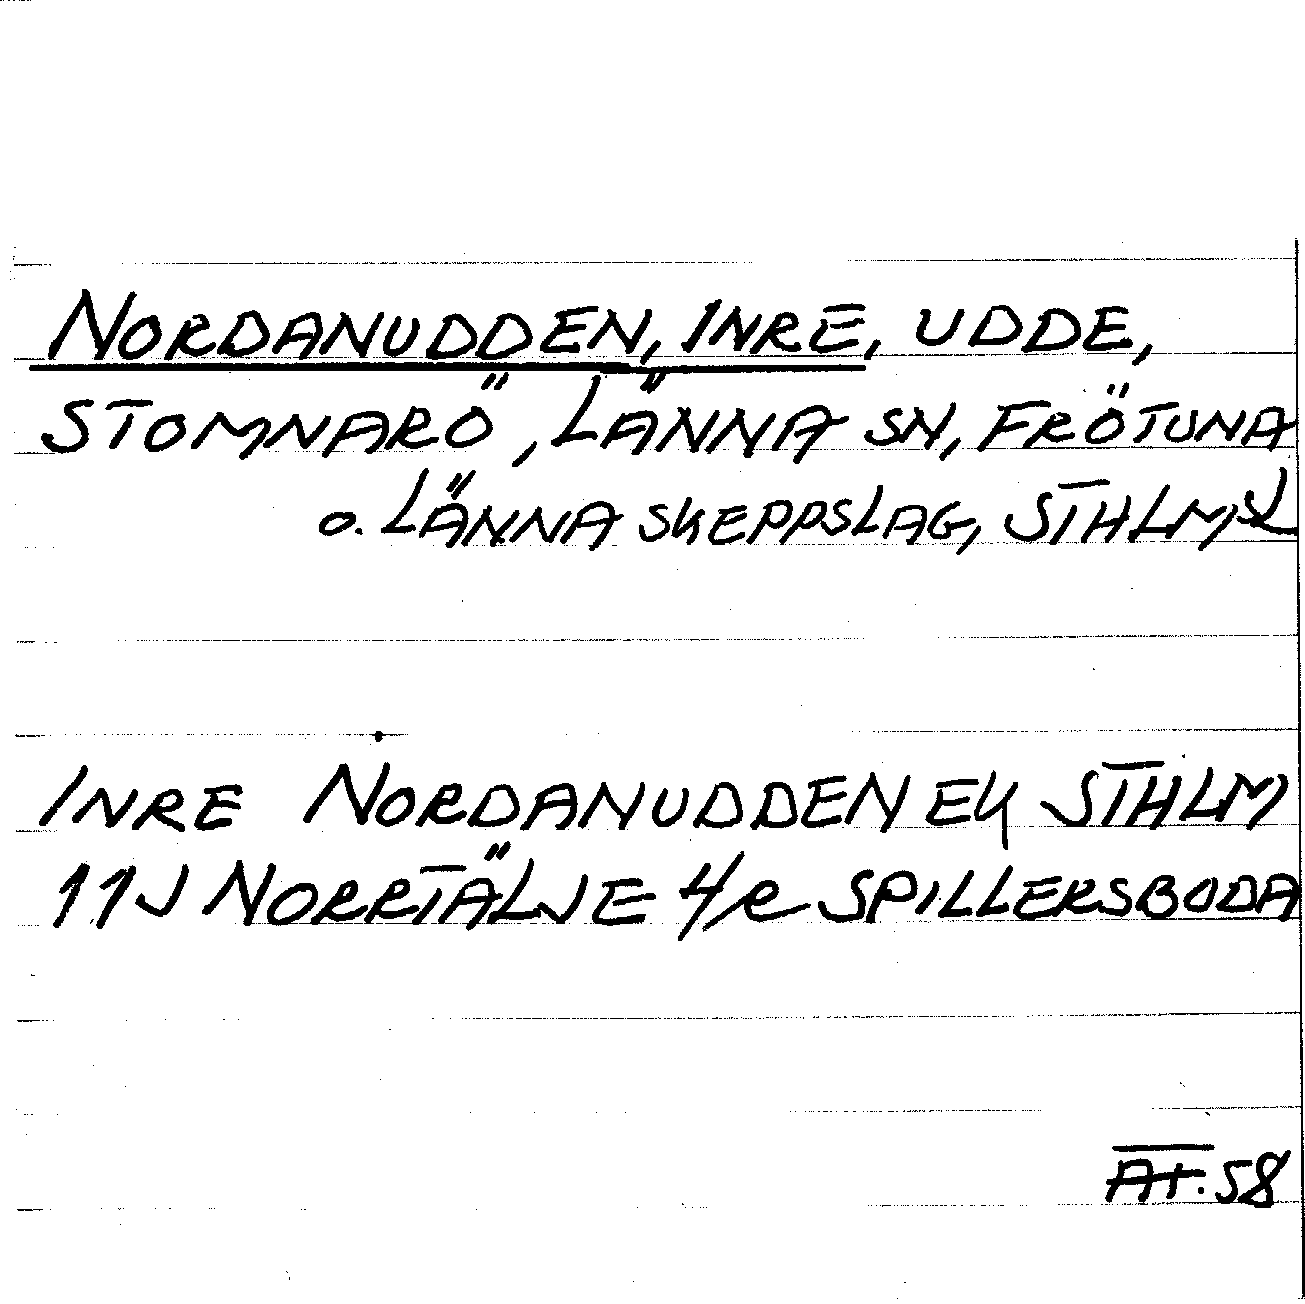 NORDANUDDEN, INRE, UDDE,
STOMNARÖ, LÄNNA SN, FRÖTUNA
O. LÄNNA SKEPPSLAG, STHLMSL
INRE NORDANUDDEN EK STHLM
11J NORRTÄLJE 4/e SPILLERSBODA
AT. 58